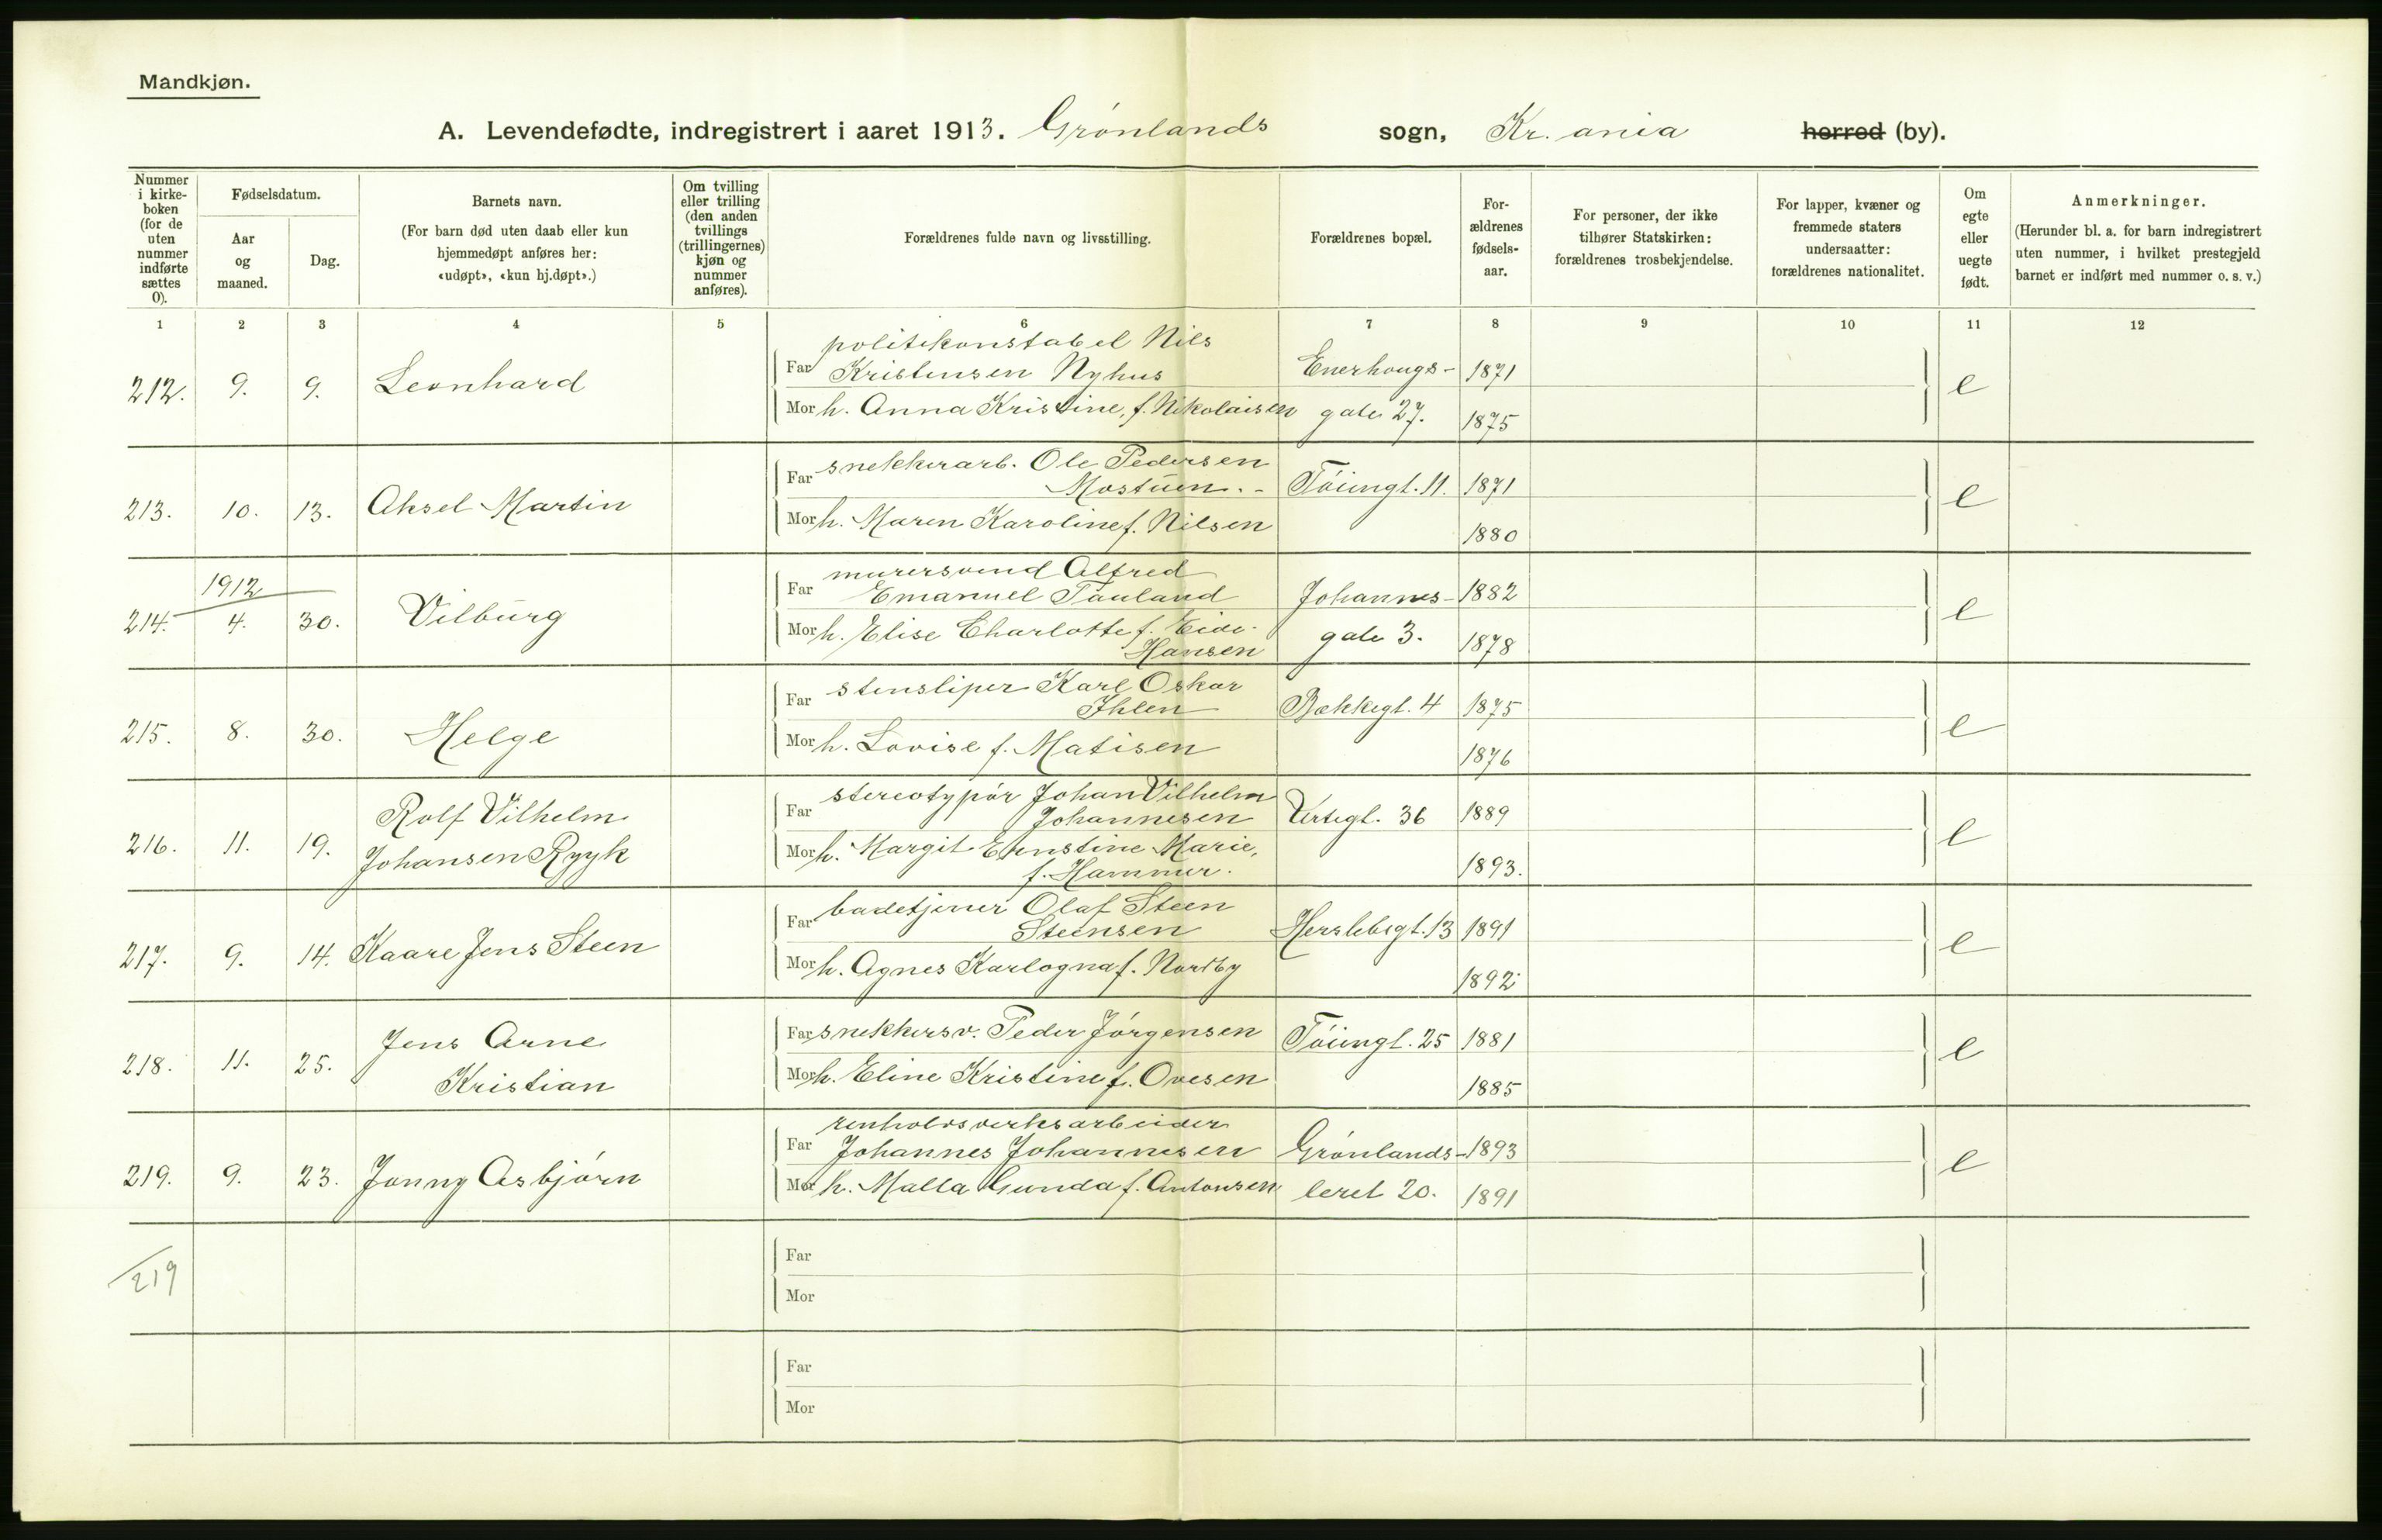 Mandkjøn.
A. Levendefødte, indregistrert i aaret 1913. Grønlands sogn, Kr.ania herred (by).
Nummer i kirke-boken (for de uten nummer indførte sættes 0).
Fødselsdatum.
Aar og maaned.
Dag.
Barnets navn.
(For barn død uten daab eller kun hjemmedøpt anføres her: «udøpt», «kun hj.døpt».)
Om tvilling eller trilling (den anden tvillings (trillingernes) kjøn og nummer anføres).
Forældrenes fulde navn og livsstilling.
Forældrenes bopæl.
For-ældrenes fødsels-aar.
For personer, der ikke tilhører Statskirken: forældrenes trosbekjendelse.
For lapper, kvæner og fremmede staters undersaatter: forældrenes nationalitet.
Om egte eller uegte født.
Anmerkninger.
(Herunder bl. a. for barn indregistrert uten nummer, i hvilket prestegjeld barnet er indført med nummer o. s. v.)
1 2 3 4 5 6 7 8 9 10 11 12
212. 9. 9. Leonhard
Far politikonstabel Nils
Kristensen Nyhus Enerhougs- 1871
Mor h. Anna Kristine, f. Nikolaisen gate 27. 1875 e
213. 10. 13. Aksel Martin
Far snekkerarb. Ole Pedersen
Mostuen. - Tøiengt. 11. 1871
Mor h. Maren Karoline f. Nilsen 1880 e
1912
214. 4. 30. Vilburg
Far murersvend Alfred
Emanuel Tauland Johannes- 1882
Mor h. Elise Charlotte f. Eide-
Hansen gate 3. 1878 e
215. 8. 30. Helge
Far stensliper Karl Oskar
Ihlen Bækkegt. 4 1875
Mor h. Lovise f. Matisen 1876 e
216. 11. 19. Rolf Vilhelm
Johansen Ryyk
Far stereotypør Johan Vilhelm
Johannesen Urtegt. 36 1889
Mor h. Margit Ernstine Marie,
f. Hammer. 1893. e
217. 9. 14. Kaare Jens Steen
Far badetjener Olaf Steen
Steensen Herslebsgt. 13 1891
Mor h. Agnes Karlogna f. Nordby 1892 e
218. 11. 25. Jens Arne
Kristian
Far snekkersv. Peder Jørgensen Tøiengt. 25 1881
Mor h. Eline Kristine f. Ovesen 1885 e
219. 9. 23. Jonny Asbjørn
Far renholdsverksarbeider
Johannes Johannesen Grønlands- 1893
Mor h. Malla Gunda f. Antonsen leret 20. 1891 e
219
Far
Mor
Far
Mor